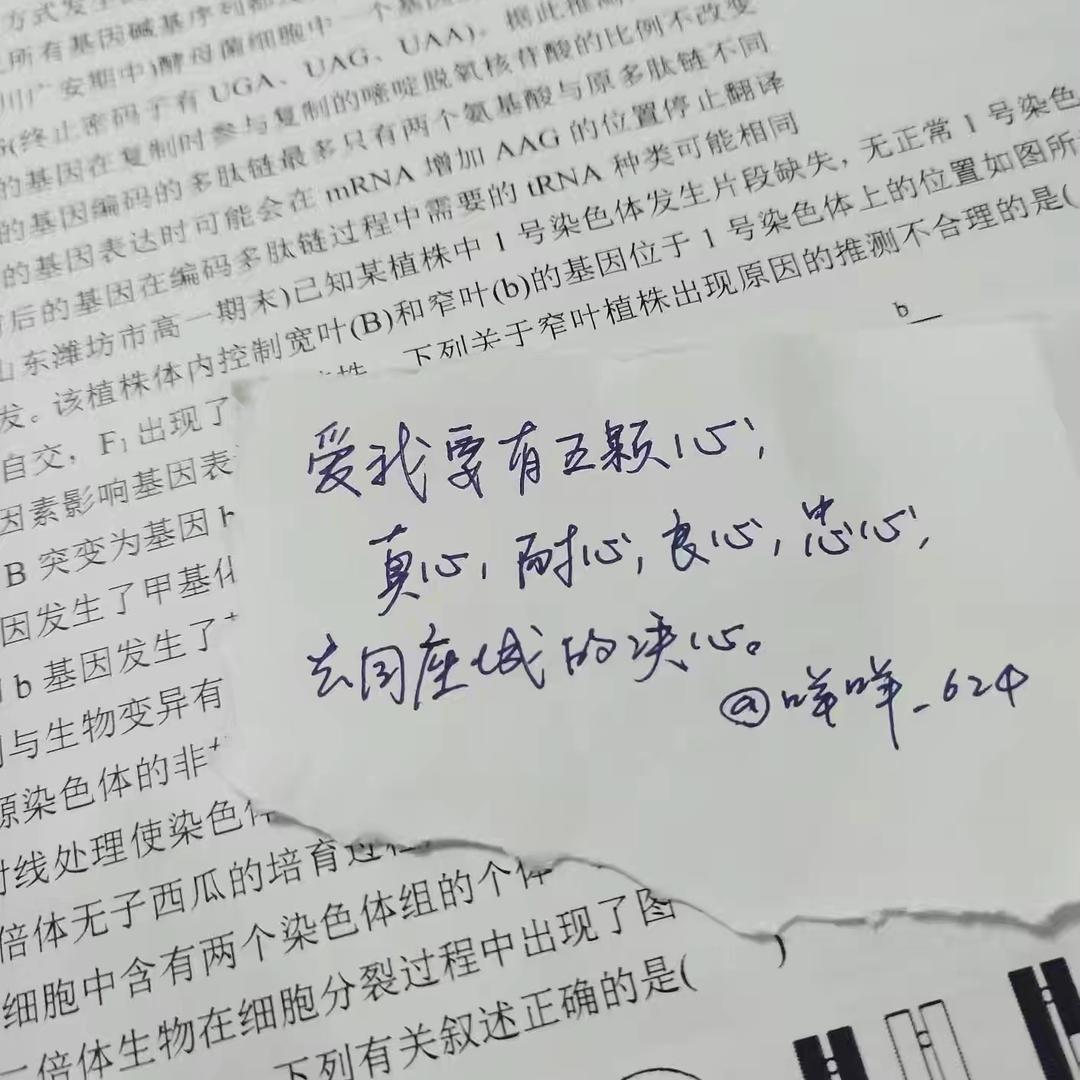 方式发生
所有基因碱基序列都
川广安期中)酵母菌细胞中一个基因
(终止密码子有 UGA、UAG、UAA)。据此推测
的基因在复制时参与复制的嘧啶脱氧核苷酸的比例不改变
的基因编码的多肽链最多只有两个氨基酸与原多肽链不同
的基因表达时可能会在 mRNA 增加 AAG 的位置停止翻译
后的基因在编码多肽链过程中需要的 tRNA 种类可能相同
山东潍坊市高一期末)已知某植株中 1 号染色体发生片段缺失，无正常 1 号染色
发。该植株体内控制宽叶(B)和窄叶(b)的基因位于 1 号染色体上的位置如图所
自交，F₁出现了
下列关于窄叶植株出现原因的推测不合理的是(
b
因素影响基因表
B 突变为基因 b
因发生了甲基化
b 基因发生了
与生物变异有
源染色体的非
射线处理使染色体
倍体无子西瓜的培育过程
细胞中含有两个染色体组的个体
二倍体生物在细胞分裂过程中出现了图
下列有关叙述正确的是( )
爱我要有五颗心，
真心，耐心，良心，忠心，
去同座城的决心。
@咩咩_624